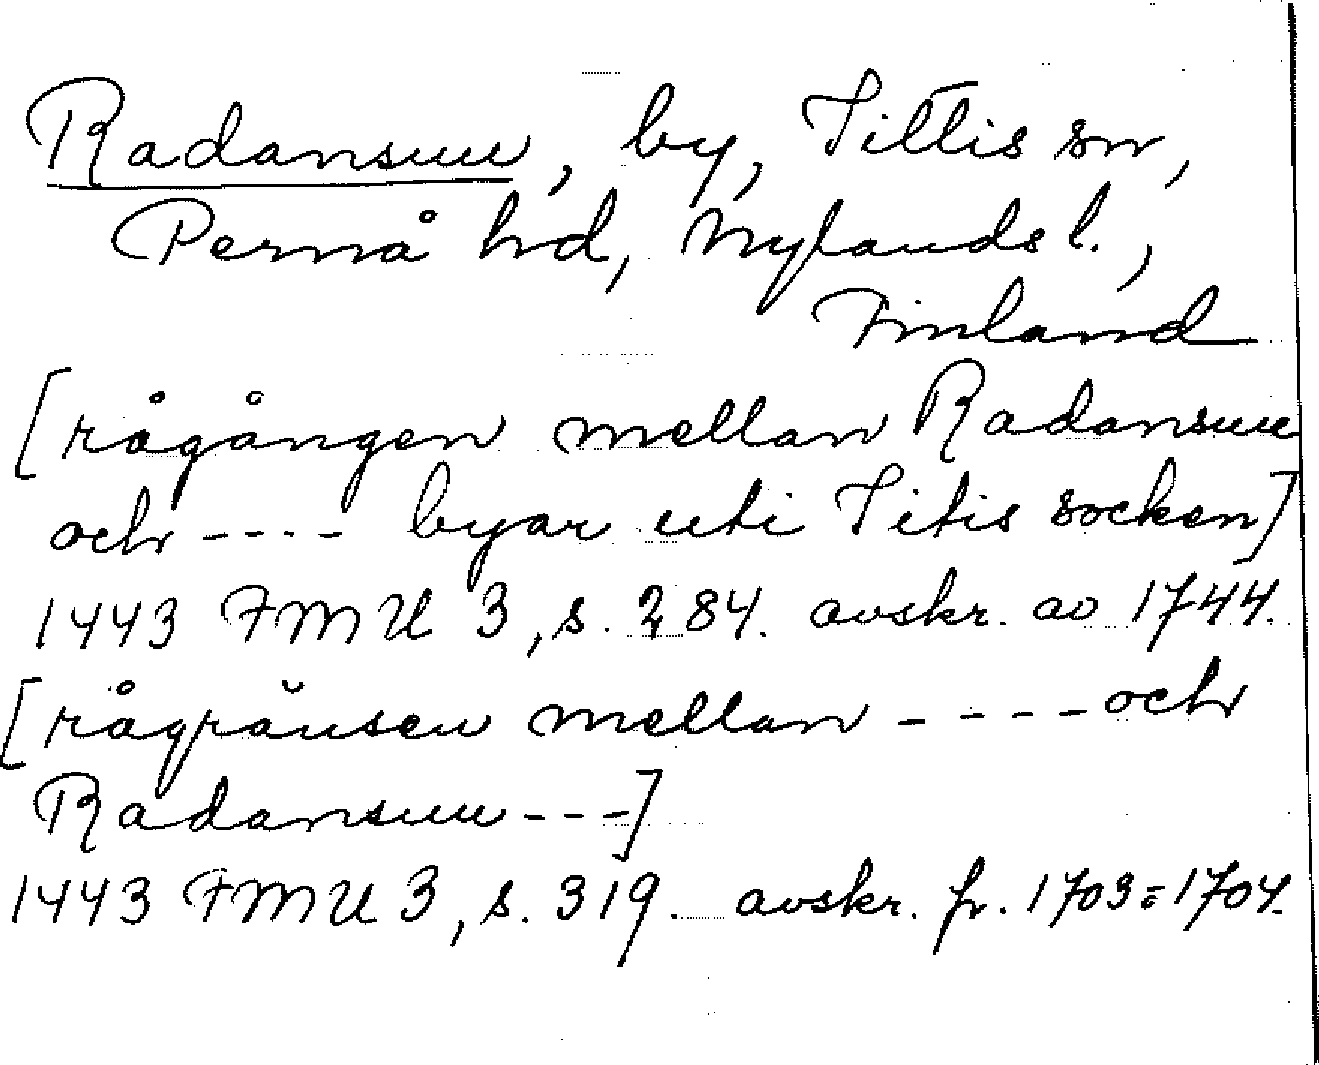 Radansuu, by, Tittis sn,
Pernå hd, Nylands l.,
Finland
[rågången mellan Radansuu
och ---- byar uti Titis socken]
1443 FMU 3, s. 284. avskr. av 1744.
[rågränsen mellan ---- och
Radansuu ---]
1443 FMU 3, s. 319. avskr. fr. 1703=1704.